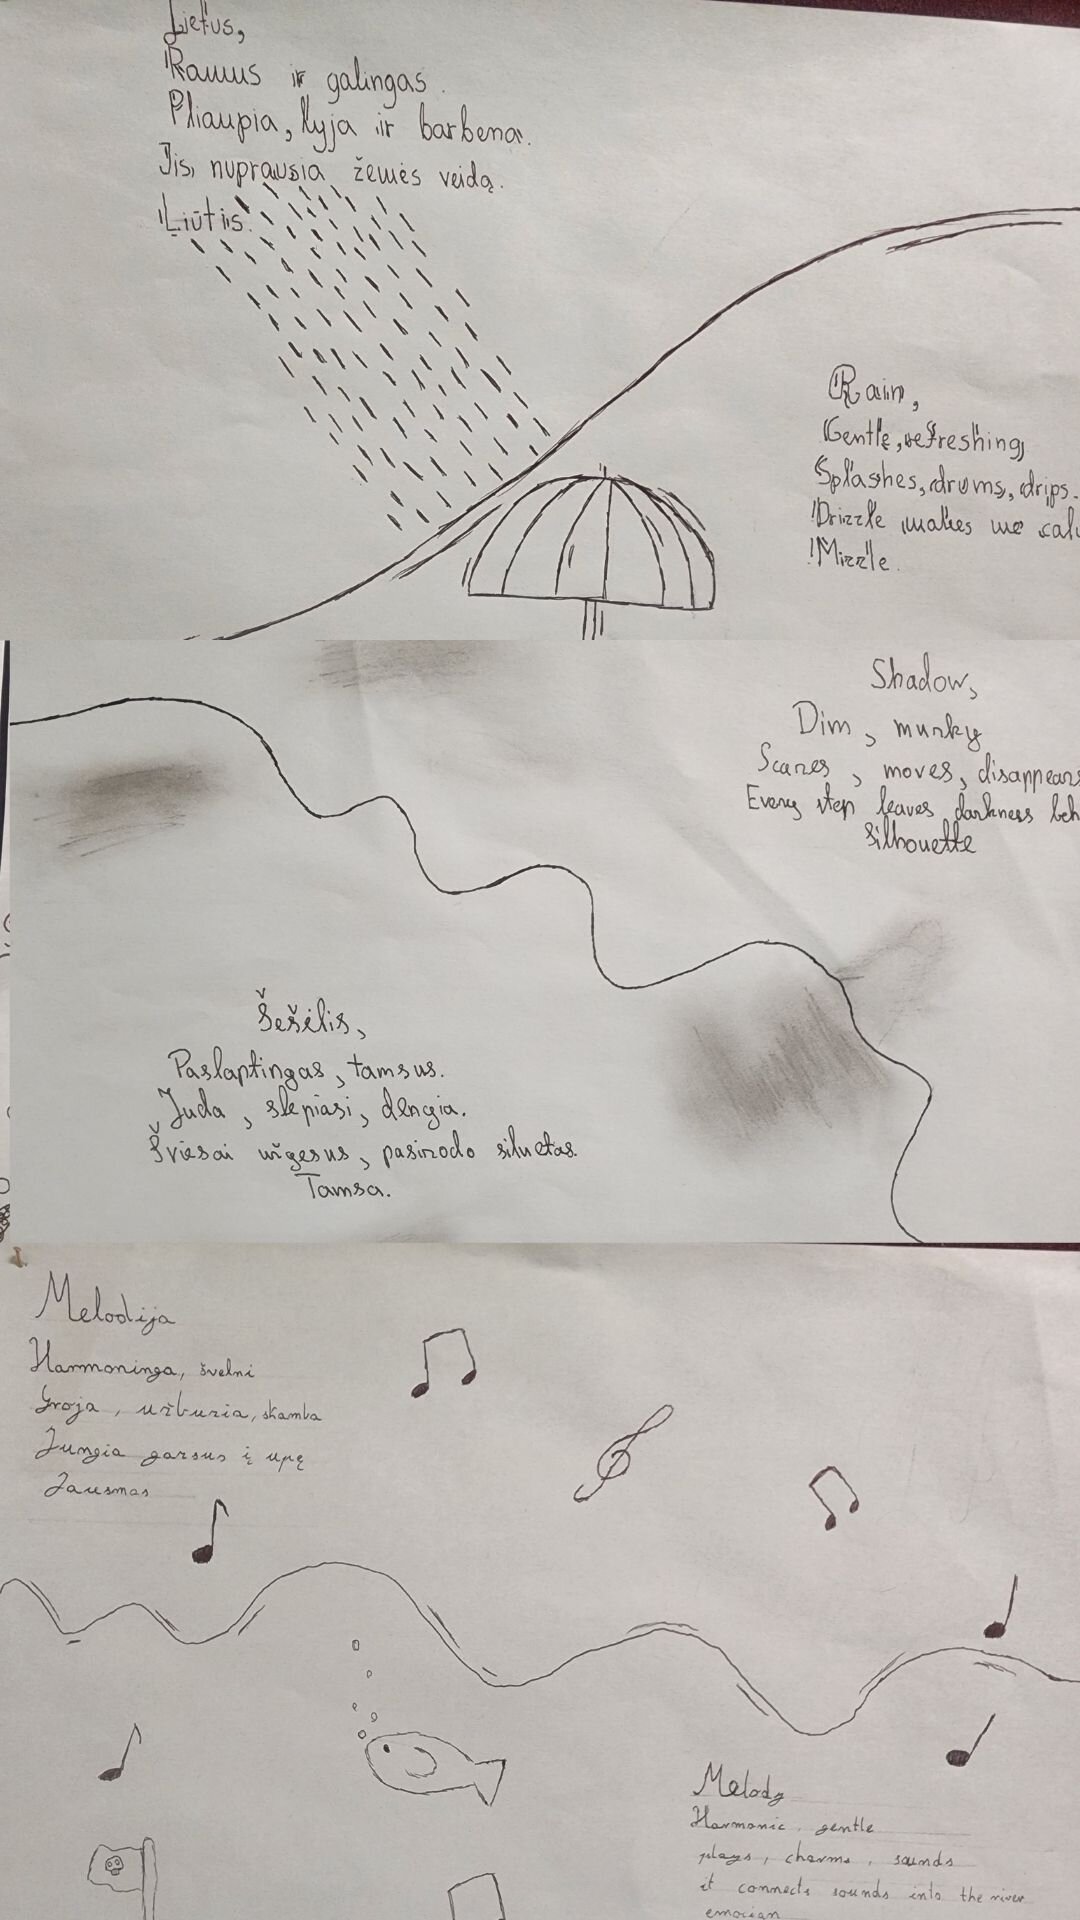 Lietus,
Ramus ir galingas.
Pliaupia, lyja ir barbena.
Jis, nuprausia žemės veidą.
Liūtis.
Rain,
Gentle, refreshing,
Splashes, drums, drips.
Drizzle makes me
Mizzle.
Shadow,
Dim, murky
Scares, moves, disappears
Every step leaves darkness beh
silhouette
Šešėlis,
Paslaptingas, tamsus.
Juda, slepiasi, dengia.
Šviesai užgesus, pasirodo siluetas.
Tamsa.
Melodija
Harmoninga, švelni
Groja, užburia, skamba
Jungia garsus į upę
Jausmas
Melody
Harmonic, gentle
plays, charms, sounds
it connects sounds into the river
emocian